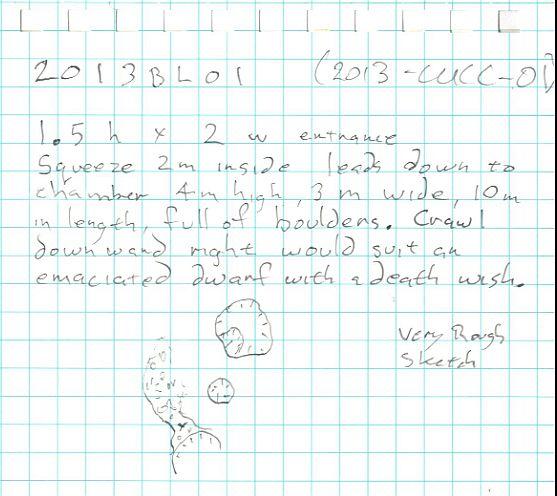 2013BL01 (2013-CUCC-01)
1.5 h x 2 w entrance
Squeeze 2m inside leads down to
chamber 4m high, 3 m wide, 10m
in length, full of boulders. Crawl
downward right would suit an
emaciated dwarf with a death wish.
Very Rough
Sketch